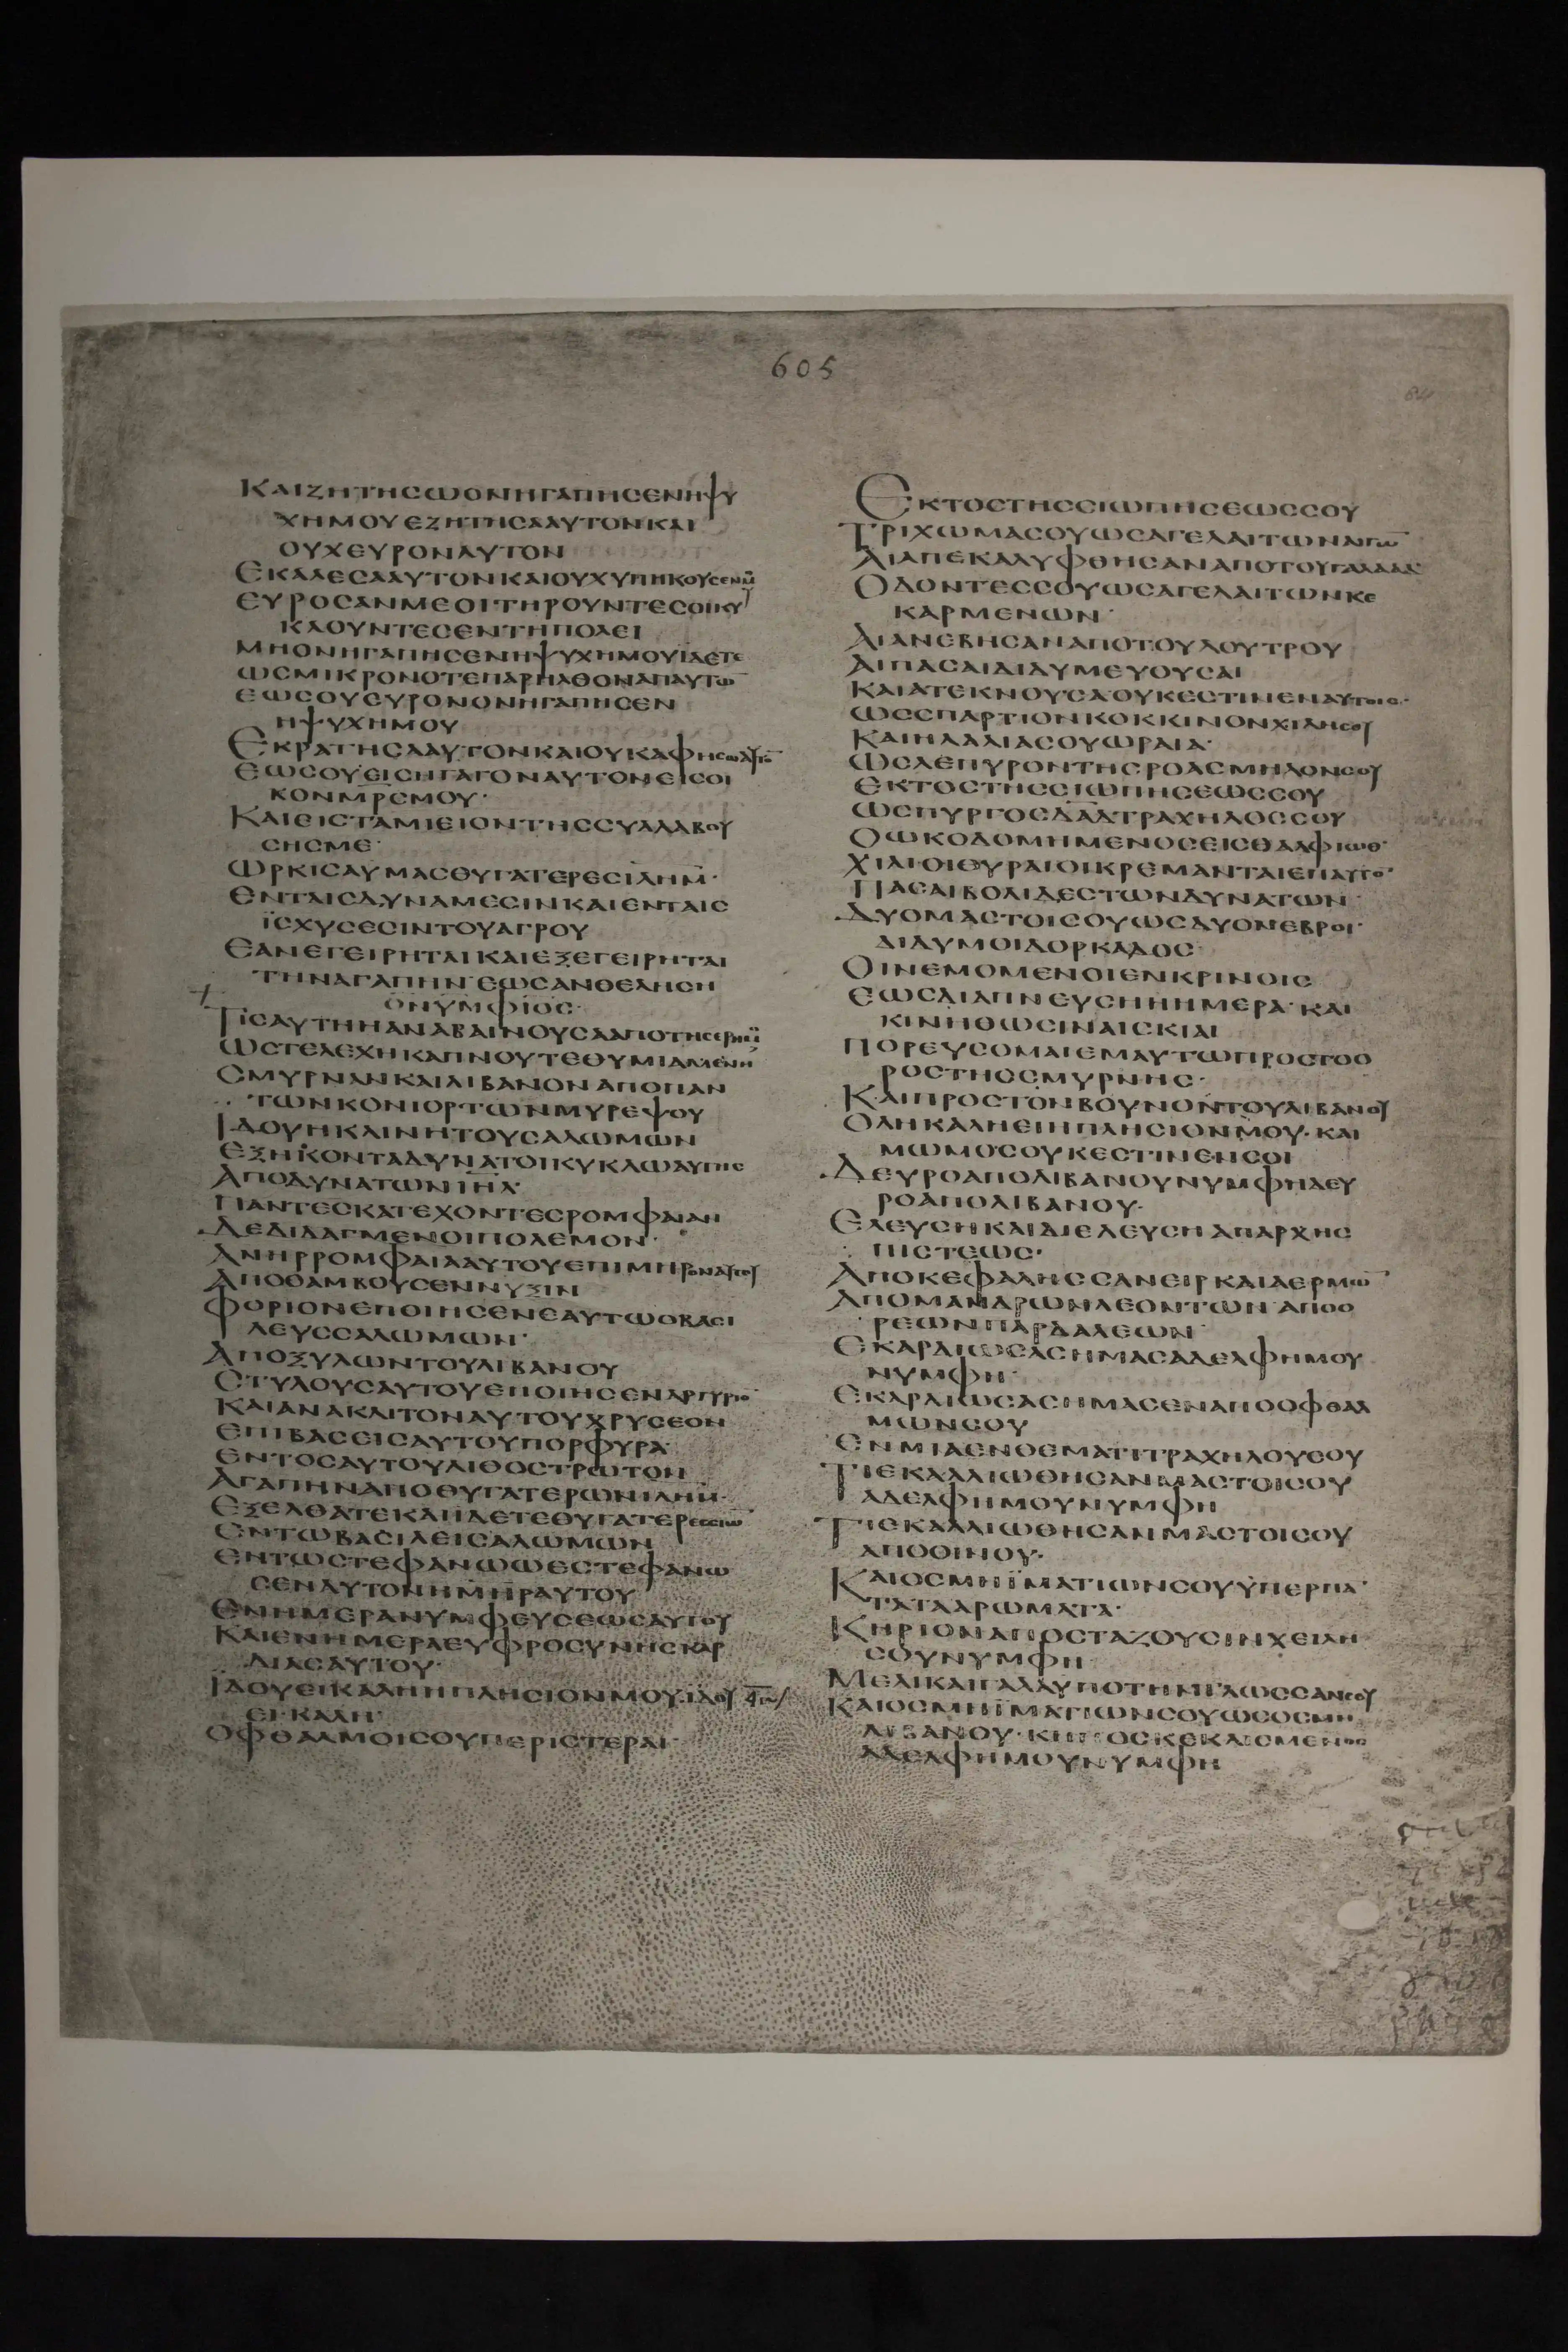 605
ΚΑΙΖΗΤΗСωΟΝΗΓΑΠΗСΕΝΗΨΥ
ΧΗΜΟΥΕΖΗΤΗСΑΑΥΤΟΝΚΑΙ
ΟΥΧΕΥΡΟΝΑΥΤΟΝ
ΕΚΑΛΕСΑΑΥΤΟΝΚΑΙΟΥΧΥΠΗΚΟΥСΕΝΜ̅
ΕΥΡΟСΑΝΜΕΟΙΤΗΡΟΥΝΤΕСΟΙΚΥ
ΚΛΟΥΝΤΕСΕΝΤΗΠΟΛΕΙ
ΜΗΟΝΗΓΑΠΗСΕΝΗΨΥΧΗΜΟΥΪΔΕΤΕ
ωСΜΙΚΡΟΝΟΤΕΠΑΡΗΛΘΟΝΑΠΑΥΤω̅
ΕωСΟΥΕΥΡΟΝΟΝΗΓΑΠΗСΕΝ
ΗΨΥΧΗΜΟΥ
ΕΚΡΑΤΗСΑΑΥΤΟΝΚΑΙΟΥΚΑΦΗСωΑΥΤΟ̅
ΕωСΟΥΕΙСΗΓΑΓΟΝΑΥΤΟΝΕΙСΟΙ
ΚΟΝΜ̅Ρ̅СΜΟΥ·
ΚΑΙΕΙСΤΑΜΙΕΙΟΝΤΗССΥΛΛΑΒΟΥ
СΗСΜΕ·
ωΡΚΙСΑΥΜΑСΘΥΓΑΤΕΡΕСΙΛΗΜ̅·
ΕΝΤΑΙСΔΥΝΑΜΕСΙΝΚΑΙΕΝΤΑΙС
ΪСΧΥСΕСΙΝΤΟΥΑΓΡΟΥ
ΕΑΝΕΓΕΙΡΗΤΑΙΚΑΙΕΞΕΓΕΙΡΗΤΑΙ
ΤΗΝΑΓΑΠΗΝ·ΕωСΑΝΘΕΛΗСΗ
ΟΝΥΜΦΙΟС·
ΤΙСΑΥΤΗΗΑΝΑΒΑΙΝΟΥСΑΑΠΟΤΗСΕΡΗΜ̅
ωСΤΕΛΕΧΗΚΑΠΝΟΥΤΕΘΥΜΙΑΜΕΝΗ
СΜΥΡΝΑΝΚΑΙΛΙΒΑΝΟΝΑΠΟΠΑΝ
ΤωΝΚΟΝΙΟΡΤωΝΜΥΡΕΨΟΥ
ΙΔΟΥΗΚΛΙΝΗΤΟΥСΑΛωΜωΝ
ΕΞΗΚΟΝΤΑΔΥΝΑΤΟΙΚΥΚΛωΑΥΤΗС
ΑΠΟΔΥΝΑΤωΝΙ̅Η̅Λ̅·
ΠΑΝΤΕСΚΑΤΕΧΟΝΤΕСΡΟΜΦΑΙΑΝ
ΔΕΔΙΔΑΓΜΕΝΟΙΠΟΛΕΜΟΝ·
ΑΝΗΡΡΟΜΦΑΙΑΑΥΤΟΥΕΠΙΜΗΡΟΝΑΥΤΟΥ
ΑΠΟΘΑΜΒΟΥСΕΝΝΥΞΙΝ
ΦΟΡΙΟΝΕΠΟΙΗСΕΝΕΑΥΤωΟΒΑСΙ
ΛΕΥССΑΛωΜωΝ·
ΑΠΟΞΥΛωΝΤΟΥΛΙΒΑΝΟΥ
СΤΥΛΟΥСΑΥΤΟΥΕΠΟΙΗСΕΝΑΡΓΥΡΙΟ̅
ΚΑΙΑΝΑΚΛΙΤΟΝΑΥΤΟΥΧΡΥСΕΟΝ
ΕΠΙΒΑССΙСΑΥΤΟΥΠΟΡΦΥΡΑ·
ΕΝΤΟСΑΥΤΟΥΛΙΘΟСΤΡωΤΟΝ
ΑΓΑΠΗΝΑΠΟΘΥΓΑΤΕΡωΝΙΛΗΜ̅·
ΕΞΕΛΘΑΤΕΚΑΙΙΔΕΤΕΘΥΓΑΤΕΡΕССΙω̅
ΕΝΤωΒΑСΙΛΕΙСΑΛωΜωΝ
ΕΝΤωСΤΕΦΑΝωωΕСΤΕΦΑΝω
СΕΝΑΥΤΟΝΗΜ̅Η̅Ρ̅ΑΥΤΟΥ
ΕΝΗΜΕΡΑΝΥΜΦΕΥСΕωСΑΥΤΟΥ
ΚΑΙΕΝΗΜΕΡΑΕΥΦΡΟСΥΝΗСΚΑΡ
ΔΙΑСΑΥΤΟΥ·
ΙΔΟΥΕΙΚΑΛΗΗΠΛΗСΙΟΝΜΟΥ·ΙΔΟΥ
ΕΙΚΑΛΗ·
ΟΦΘΑΛΜΟΙСΟΥΠΕΡΙСΤΕΡΑΙ·
ΕΚΤΟСΤΗССΙωΠΗСΕωССΟΥ
ΤΡΙΧωΜΑСΟΥωСΑΓΕΛΑΙΤωΝΑΙΓω̅
ΑΙΑΠΕΚΑΛΥΦΘΗСΑΝΑΠΟΤΟΥΓΑΛΑΑΔ·
ΟΔΟΝΤΕССΟΥωСΑΓΕΛΑΙΤωΝΚΕ
ΚΑΡΜΕΝωΝ·
ΑΙΑΝΕΒΗСΑΝΑΠΟΤΟΥΛΟΥΤΡΟΥ
ΑΙΠΑСΑΙΔΙΔΥΜΕΥΟΥСΑΙ
ΚΑΙΑΤΕΚΝΟΥСΑΟΥΚΕСΤΙΝΕΝΑΥΤΟΙС·
ωССΠΑΡΤΙΟΝΚΟΚΚΙΝΟΝΧΙΛΗСΟΥ
ΚΑΙΗΛΑΛΙΑСΟΥωΡΑΙΑ·
ωСΛΕΠΥΡΟΝΤΗСΡΟΑСΜΗΛΟΝСΟΥ
ΕΚΤΟСΤΗССΙωΠΗСΕωССΟΥ
ωСΠΥΡΓΟСΔ̅Α̅Δ̅ΤΡΑΧΗΛΟССΟΥ
ΟωΚΟΔΟΜΗΜΕΝΟСΕΙСΘΑΛΦΙωΘ·
ΧΙΛΙΟΙΘΥΡΑΙΟΙΚΡΕΜΑΝΤΑΙΕΠΑΥΤΟ̅
ΠΑСΑΙΒΟΛΙΔΕСΤωΝΔΥΝΑΤωΝ·
ΔΥΟΜΑСΤΟΙСΟΥωСΔΥΟΝΕΒΡΟΙ·
ΔΙΔΥΜΟΙΔΟΡΚΑΔΟС·
ΟΙΝΕΜΟΜΕΝΟΙΕΝΚΡΙΝΟΙС
ΕωСΔΙΑΠΝΕΥСΗΗΗΜΕΡΑ·ΚΑΙ
ΚΙΝΗΘωСΙΝΑΙСΚΙΑΙ
ΠΟΡΕΥСΟΜΑΙΕΜΑΥΤωΠΡΟСΤΟΟ
ΡΟСΤΗССΜΥΡΝΗС·
ΚΑΙΠΡΟСΤΟΝΒΟΥΝΟΝΤΟΥΛΙΒΑΝΟΥ
ΟΛΗΚΑΛΗΕΙΗΠΛΗСΙΟΝΜΟΥ·ΚΑΙ
ΜωΜΟСΟΥΚΕСΤΙΝΕΝСΟΙ
ΔΕΥΡΟΑΠΟΛΙΒΑΝΟΥΝΥΜΦΗΔΕΥ
ΡΟΑΠΟΛΙΒΑΝΟΥ·
ΕΛΕΥСΗΚΑΙΔΙΕΛΕΥСΗΑΠΑΡΧΗС
ΠΙСΤΕωС·
ΑΠΟΚΕΦΑΛΗССΑΝΕΙΡΚΑΙΑΕΡΜω̅
ΑΠΟΜΑΝΔΡωΝΛΕΟΝΤωΝ·ΑΠΟΟ
ΡΕωΝΠΑΡΔΑΛΕωΝ·
ΕΚΑΡΔΙωСΑСΗΜΑСΑΔΕΛΦΗΜΟΥ
ΝΥΜΦΗ·
ΕΚΑΡΔΙωСΑСΗΜΑСΕΝΑΠΟΟΦΘΑΛ
ΜωΝСΟΥ
ΕΝΜΙΑΕΝΘΕΜΑΤΙΤΡΑΧΗΛΟΥСΟΥ
ΤΙΕΚΑΛΛΙωΘΗСΑΝΜΑСΤΟΙСΟΥ
ΑΔΕΛΦΗΜΟΥΝΥΜΦΗ
ΤΙΕΚΑΛΛΙωΘΗСΑΝΜΑСΤΟΙСΟΥ
ΑΠΟΟΙΝΟΥ·
ΚΑΙΟСΜΗΪΜΑΤΙωΝСΟΥΫΠΕΡΠΑ
ΤΑΤΑΑΡωΜΑΤΑ·
ΚΗΡΙΟΝΑΠΟСΤΑΖΟΥСΙΝΧΕΙΛΗ
СΟΥΝΥΜΦΗ
ΜΕΛΙΚΑΙΓΑΛΑΥΠΟΤΗΝΓΛωССΑΝСΟΥ
ΚΑΙΟСΜΗΪΜΑΤΙωΝСΟΥωСΟСΜΗ
ΛΙΒΑΝΟΥ·ΚΗΠΟСΚΕΚΛΙСΜΕΝΟС
ΑΔΕΛΦΗΜΟΥΝΥΜΦΗ